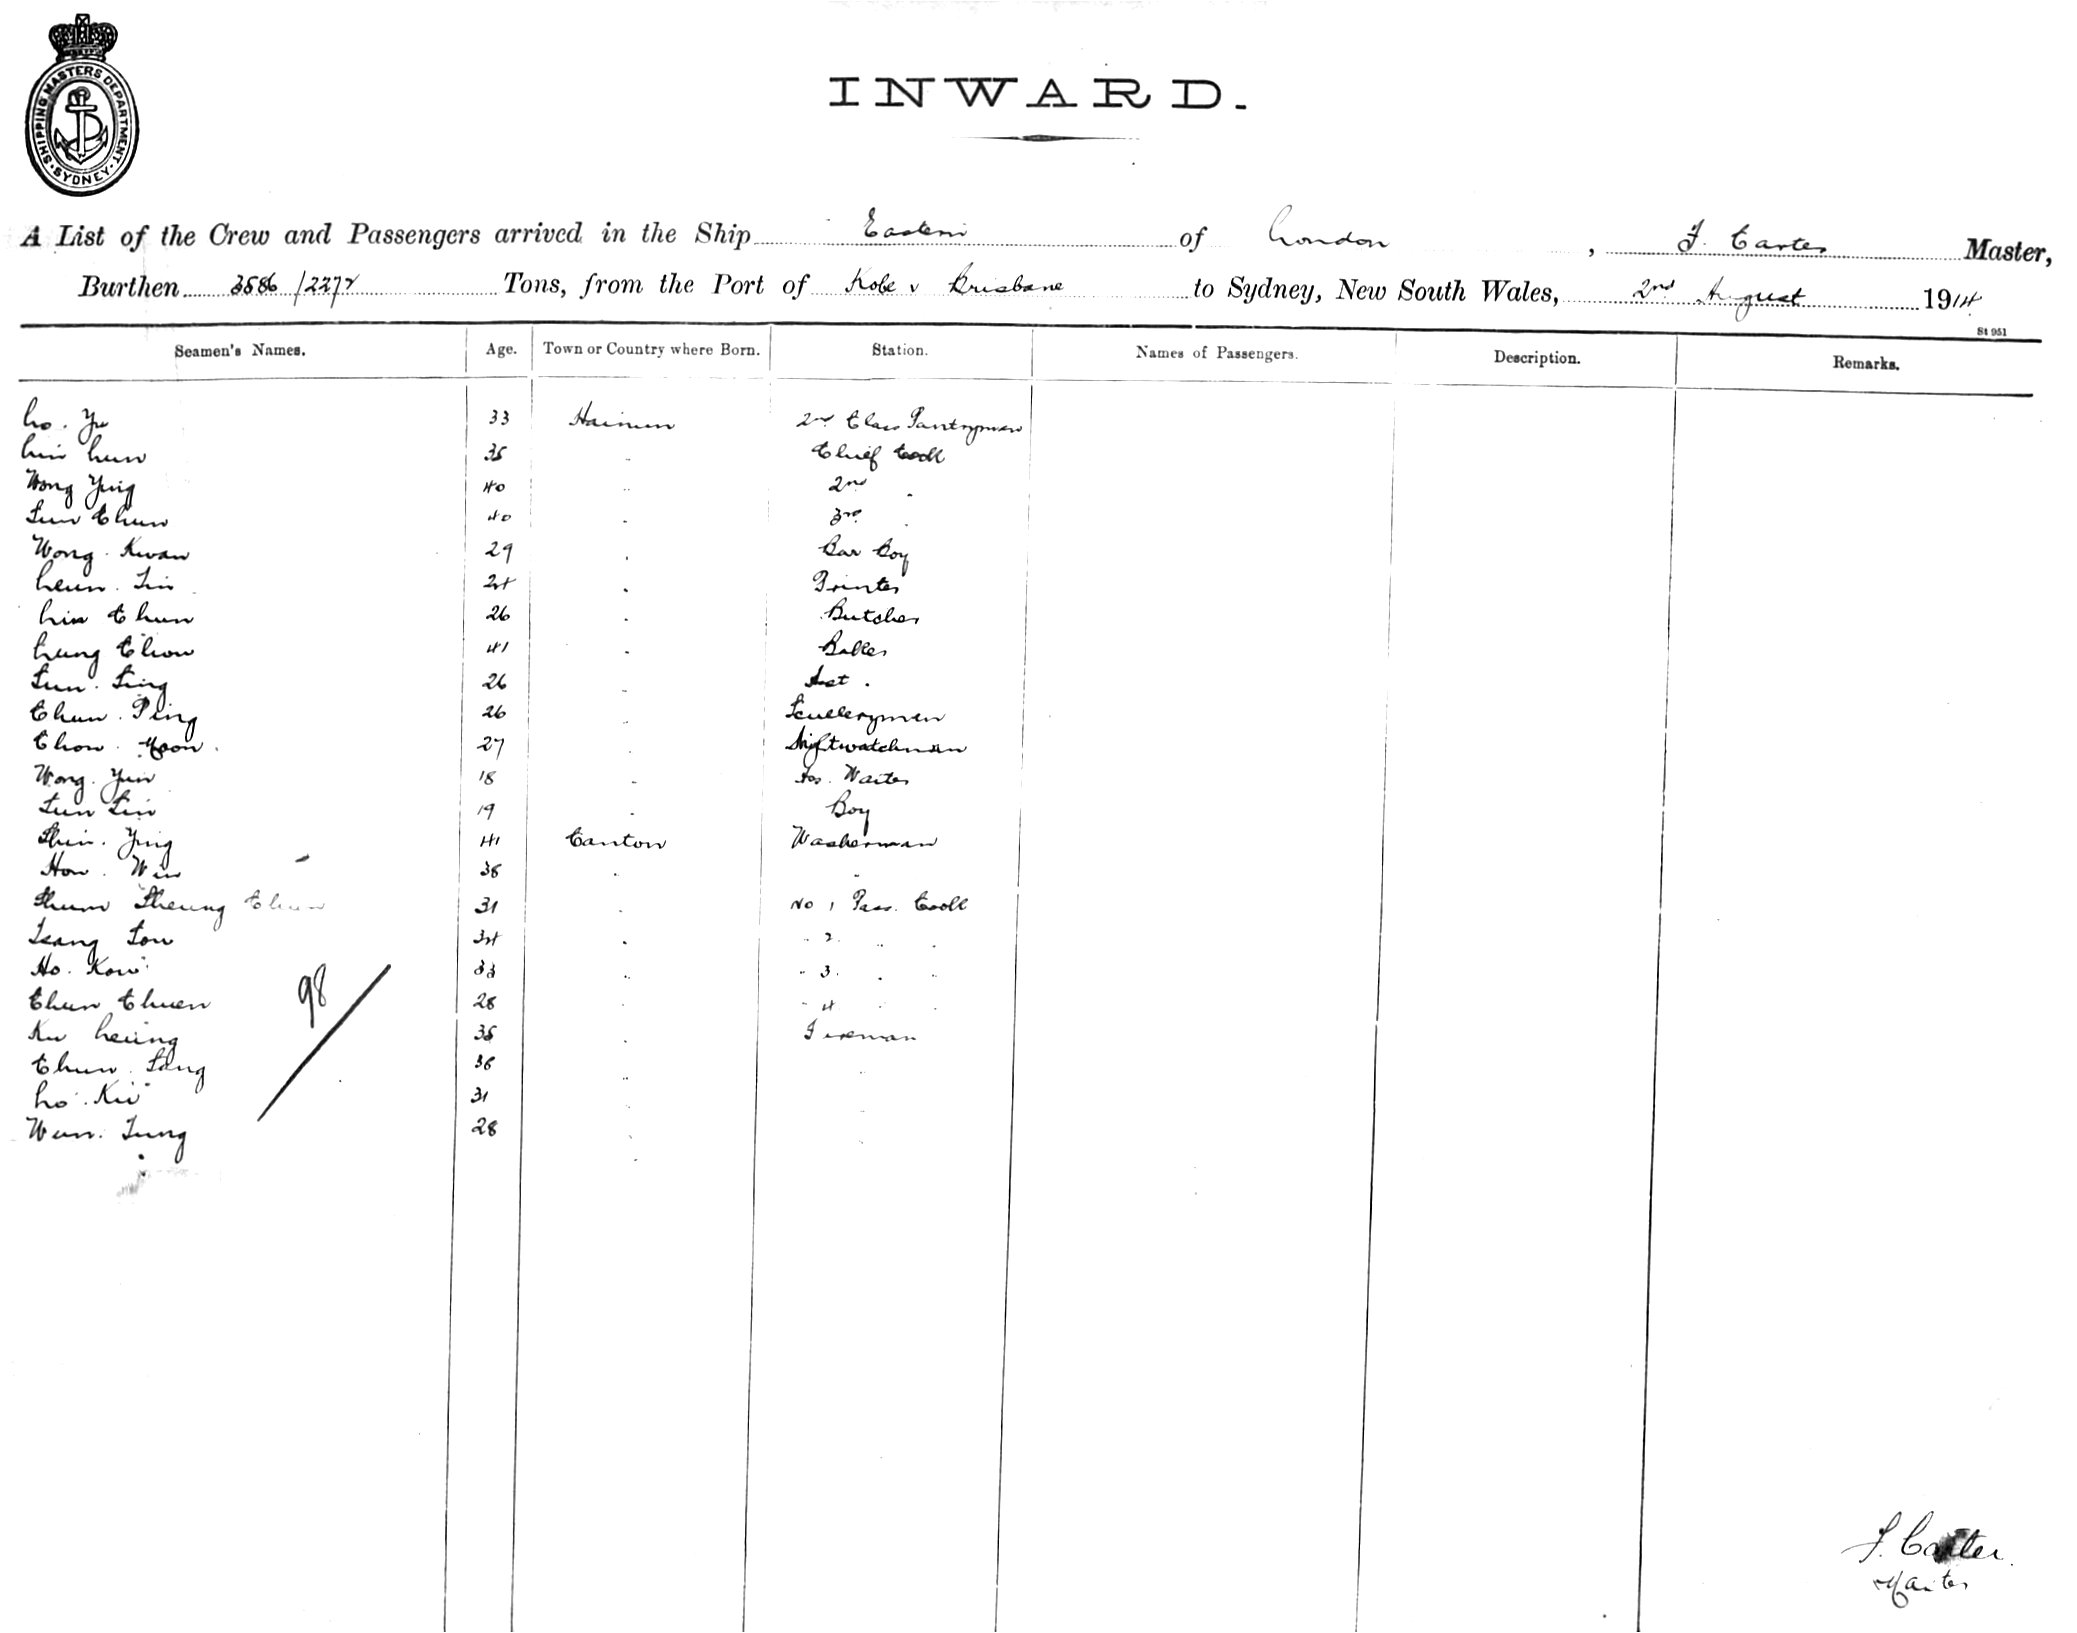 SHIPPING MASTERS DEPARTMENT. SYDNEY.
INWARD.
A List of the Crew and Passengers arrived in the Ship Eastern of London, F. Carter Master,
Burthen 3586/2272 Tons, from the Port of Kobe v Brisbane to Sydney, New South Wales, 2nd August 1914
St 951
Seamen's Names. Age. Town or Country where Born. Station. Names of Passengers. Description. Remarks.
Lo. Yu 33 Hainun 2nd Class Pantryman
Lin Lun 35 " Chief Cook
Wong Ying 40 " 2nd "
Sun Chun 40 " 3rd "
Wong. Kwan 29 " Bar Boy
Leun. Sin 24 " Printer
Lin Chun 26 " Butcher
Lung Chow 41 " Baker
Sun. Sing 26 " Asst "
Chun. Ping 26 " Scullerymen
Chow. Moon. 27 " Nightwatchman
Wong. Yun 18 " Fos. Waiter
Sun Sin 19 " Boy
Shin. Ying 41 Canton Washerman
How. Win 38 " "
Shum Sheung Chun 31 " No 1 Pass. Cook
Tsang Sow 34 " " 2 " "
Ho. Kow 33 " " 3 " "
Chun Chuen 28 " " 4 " "
98
Ku Leung 35 " Fireman
Chun. Sang 36 " "
Lo. Kii 31 " "
Wun. Tung 28 " "
F. Carter
Master